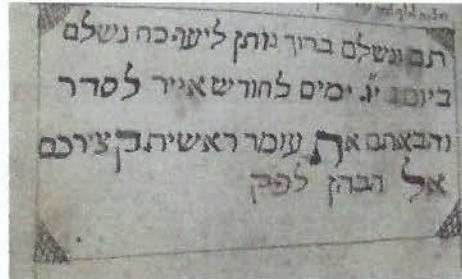 תם ונשלם ברוך נותן ליעף כח נשלם
ביום ג י״ג ימים לחודש אייר לסדר
והבאתם את עומר ראשית קצירכם
אל הכהן לפק